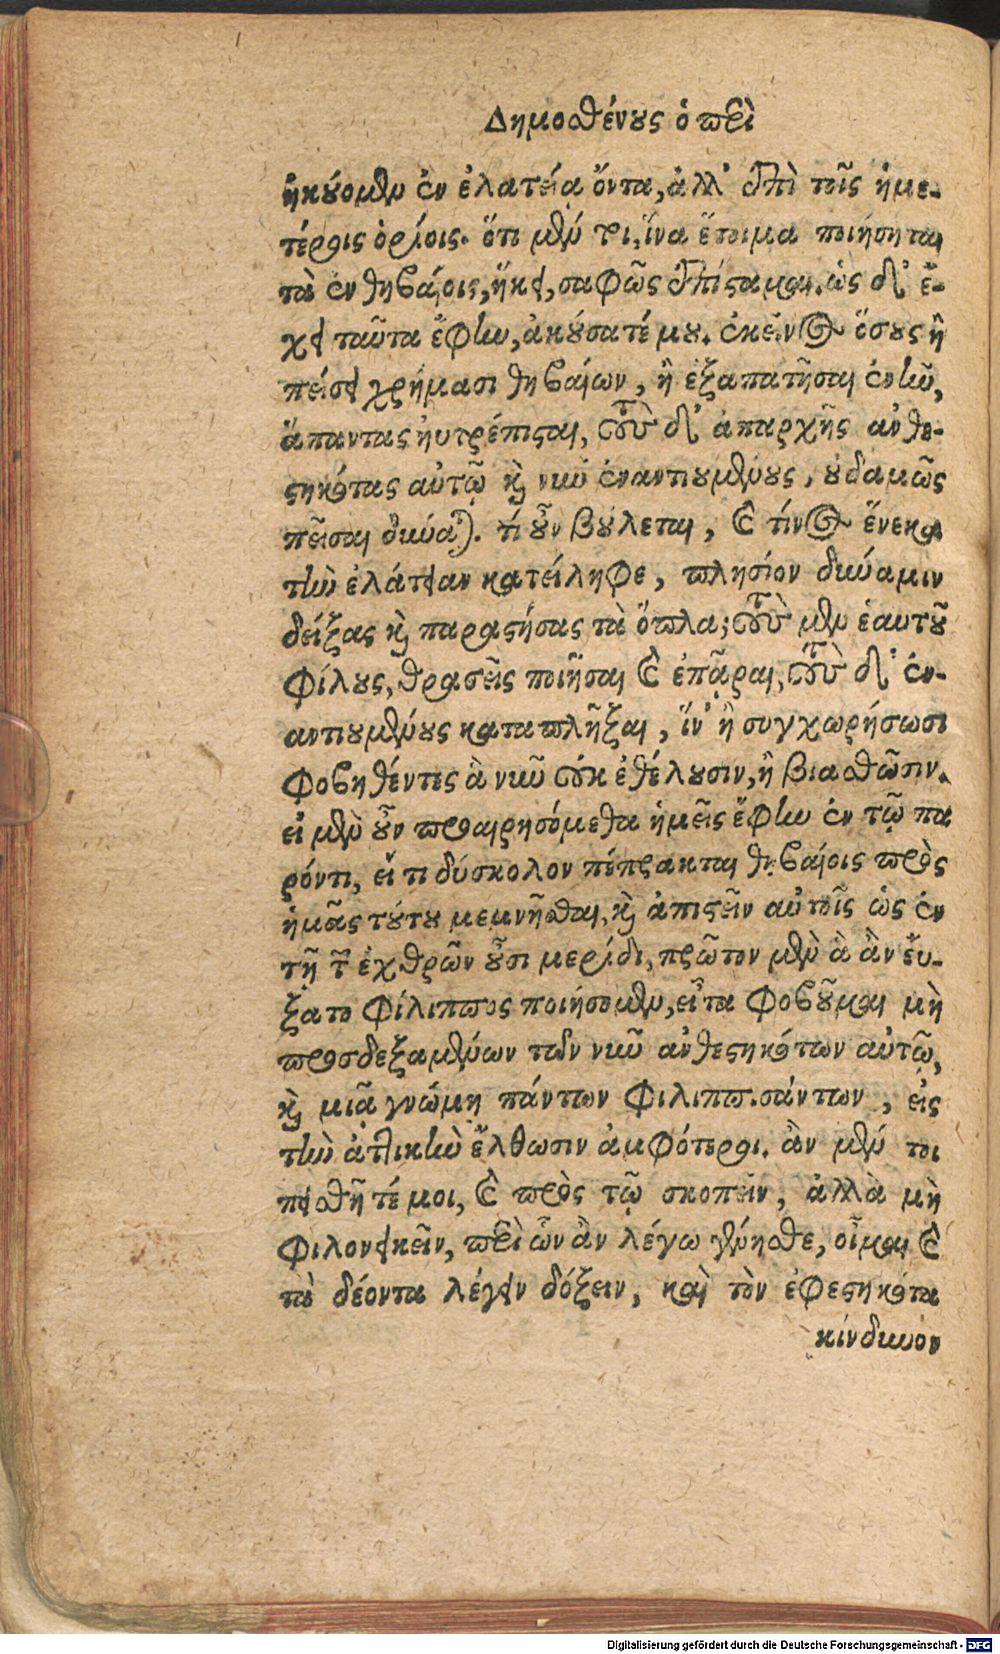 Δημοσθένους ὁ περὶ
ἠκούομεν ἐν ἐλατείᾳ ὄντα, ἀλλ' ἐπὶ τοῖς ἡμε-
τέροις ὁρίοις. ὅτι μέντοι, ἵνα ἕτοιμα ποιήσηται
τὰ ἐν θηβαίοις, ἥκει, σαφῶς ἐπίσταμαι. ὡς δ' ἔ-
χει ταῦτα ἔφην, ἀκούσατέ μου. ἐκεῖνος ὅσους ἢ
πεῖσαι χρήμασι θηβαίων, ἢ ἐξαπατῆσαι ἐνῆν,
ἅπαντας ηὐτρέπισται, τοὺς δ' ἀπαρχῆς ἀνθε-
στηκότας αὐτῷ καὶ νῦν ἐναντιουμένους, οὐδαμῶς
πεῖσαι δύναται. τί οὖν βούλεται, καὶ τίνος ἕνεκα
τὴν ἐλάτειαν κατείληφε, πλησίον δύναμιν
δείξας καὶ παραστήσας τὰ ὅπλα; τοὺς μὲν ἑαυτοῦ
φίλους, θρασεῖς ποιῆσαι καὶ ἐπᾶραι, τοὺς δ' ἐν-
αντιουμένους καταπλῆξαι, ἵν' ἢ συγχωρήσωσι
φοβηθέντες ἃ νῦν οὐκ ἐθέλουσιν, ἢ βιασθῶσιν.
εἰ μὲν οὖν προαιρησόμεθα ἡμεῖς ἔφην ἐν τῷ πα
ρόντι, εἴ τι δύσκολον πέπρακται θηβαίοις πρὸς
ἡμᾶς τούτου μεμνῆσθαι, καὶ ἀπιστεῖν αὐτοῖς ὡς ἐν
τῇ τῶν ἐχθρῶν οὖσι μερίδι, πρῶτον μὲν ἃ ἂν εὔ-
ξατο φίλιππος ποιήσομεν, εἶτα φοβοῦμαι μὴ
προσδεξαμένων τῶν νῦν ἀνθεστηκότων αὐτῷ,
καὶ μιᾷ γνώμῃ πάντων φιλιππισάντων, εἰς
τὴν ἀττικὴν ἔλθωσιν ἀμφότεροι. ἂν μέν τοι
πεισθῆτέ μοι, καὶ πρὸς τῷ σκοπεῖν, ἀλλὰ μὴ
φιλονεικεῖν, περὶ ὧν ἂν λέγω γένησθε, οἶμαι καὶ
τὰ δέοντα λέγειν δόξειν, καὶ τὸν ἐφεστηκότα
κίνδυνον
Digitalisierung gefördert durch die Deutsche Forschungsgemeinschaft - DFG